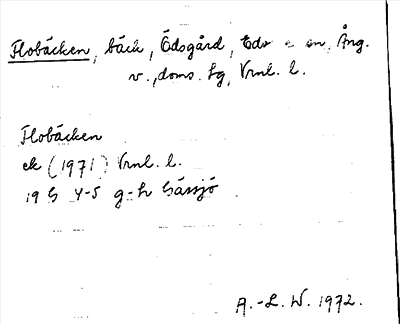 Flobäcken, bäck, Ödsgård, Eds sn, Ång.
v., doms. lg, Vrml. l.
Flobäcken
ek (1971) Vrml. l.
19 G 4-5 g-h Gåssjö
A.-L. W. 1972.